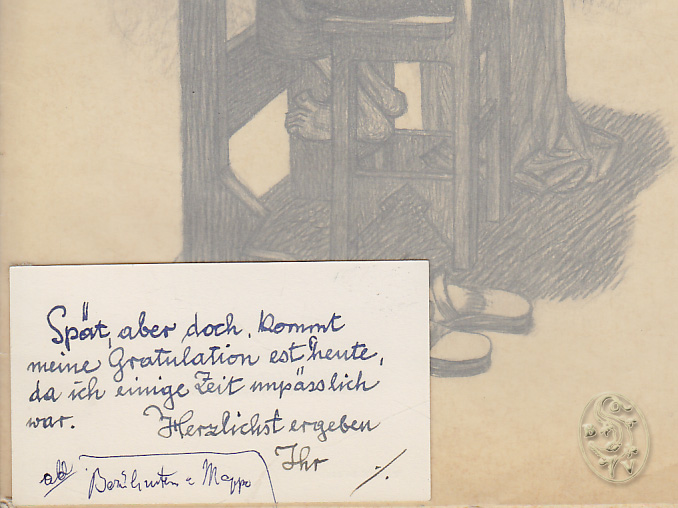 Spät, aber doch, kommt
meine Gratulation erst heute,
da ich einige Zeit unpässlich
war. Herzlichst ergeben
Ihr ./.
Mappe